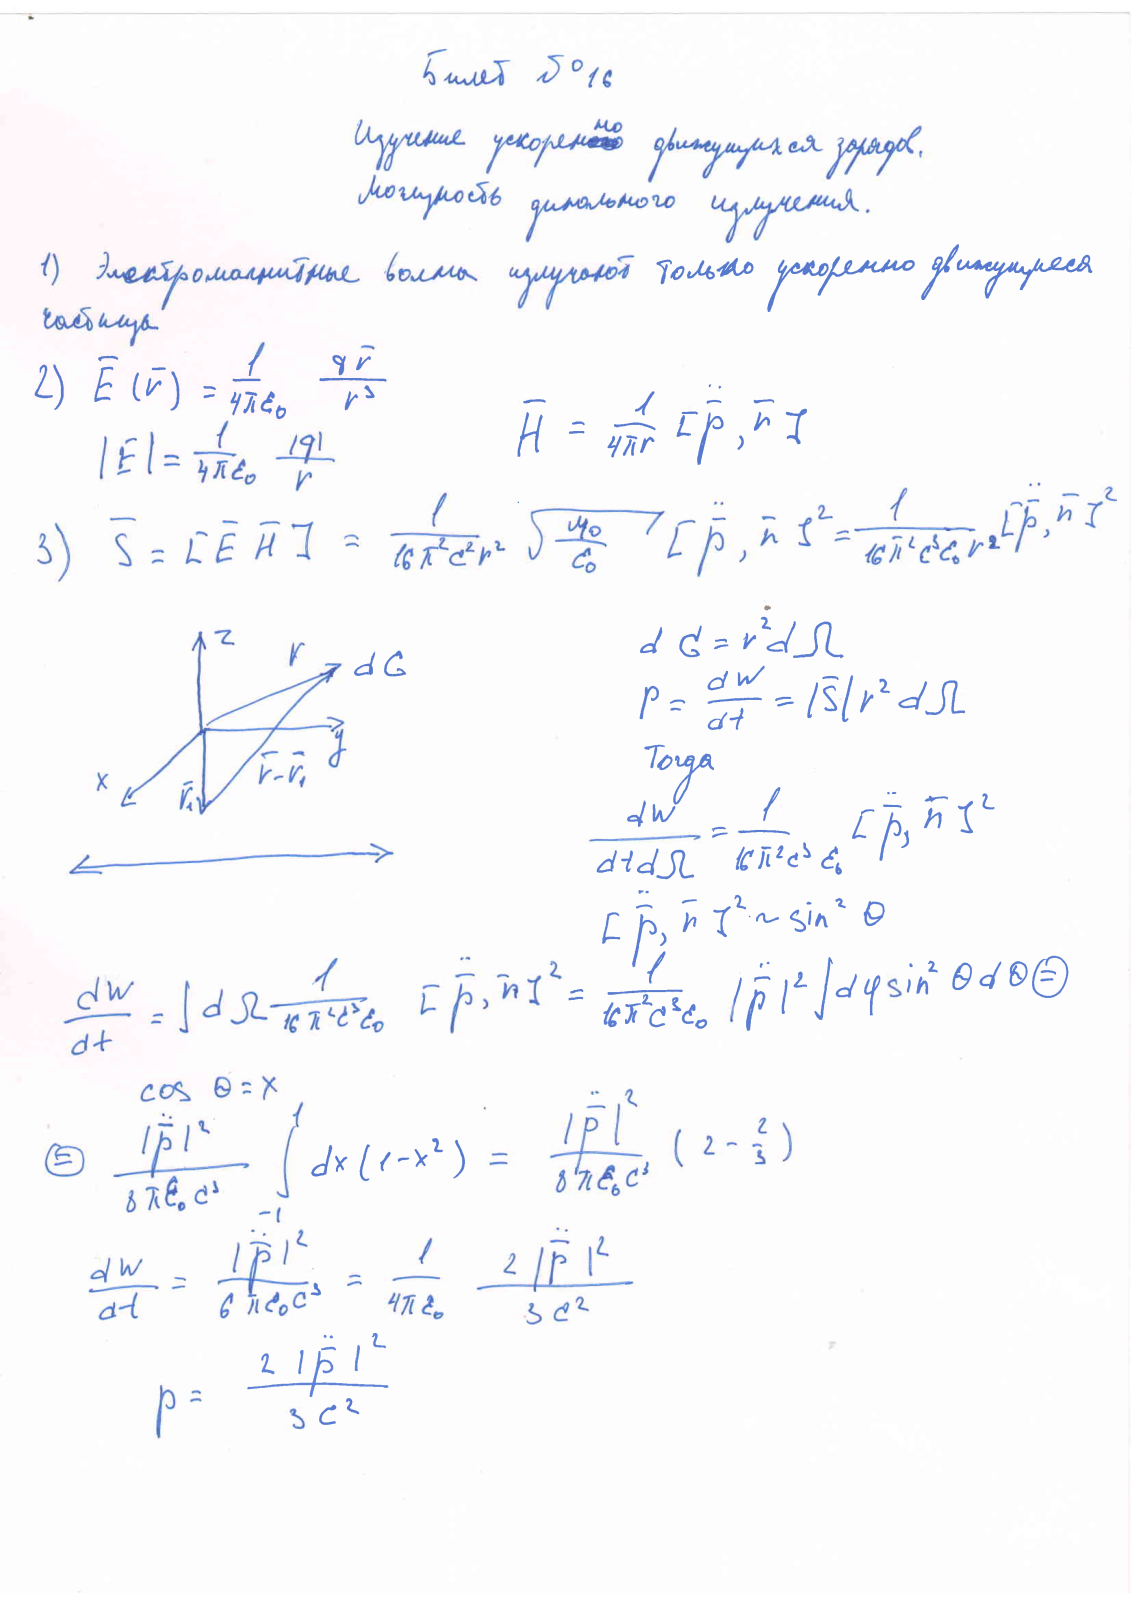 Билет №16
Излучение ускоренно движущихся зарядов.
Мощность дипольного излучения.
1) Электромагнитные волны излучают только ускоренно движущиеся
частицы
2) E̅(r̅) = 1/(4πε₀) qr̅/r³
H̅ = 1/(4πr) [p̅̈, n̅]
|E̅| = 1/(4πε₀) |q|/r
3) S̅ = [E̅ H̅] = 1/(16π²c²r²) √(μ₀/ε₀) [p̅̈, n̅]² = 1/(16π²c³ε₀r²) [p̅̈, n̅]²
z
r
dG
y
x
r̅₁
r̅-r̅₁
dG = r²dΩ
P = dW/dt = |S̅| r² dΩ
Тогда
dW/(dtdΩ) = 1/(16π²c³ε₀) [p̅̈, n̅]²
[p̅̈, n̅]² ~ sin² θ
dW/dt = ∫dΩ 1/(16π²c³ε₀) [p̅̈, n̅]² = 1/(16π²c³ε₀) |p̅̈|² ∫dφ sin² θ dθ ⊜
cos θ = x
⊜ |p̅̈|²/(8πε₀c³) ∫₋₁¹ dx(1-x²) = |p̅̈|²/(8πε₀c³) (2 - 2/3)
dW/dt = |p̅̈|²/(6πε₀c³) = 1/(4πε₀) 2|p̅̈|²/(3c²)
p = 2|p̅̈|²/(3c²)